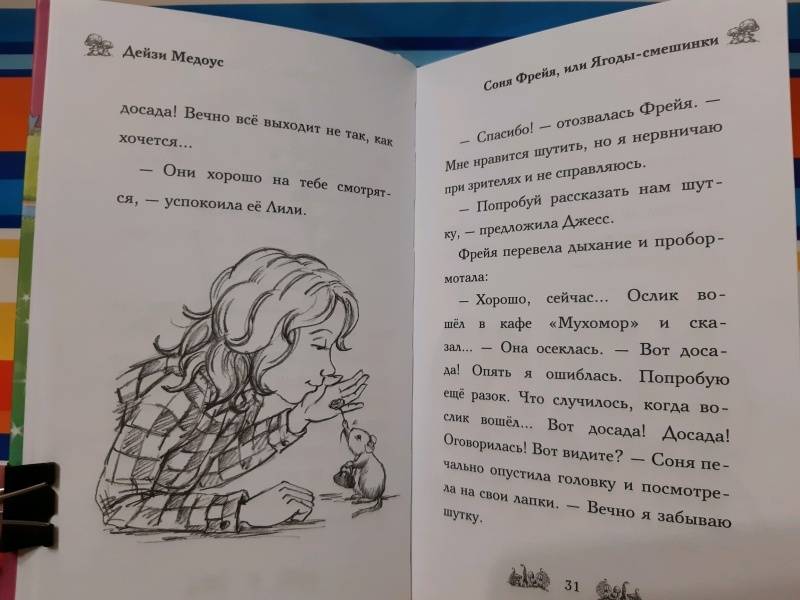 Дейзи Медоус
досада! Вечно всё выходит не так, как
хочется...
— Они хорошо на тебе смотрят-
ся, — успокоила её Лили.
Соня Фрейя, или Ягоды-смешинки
— Спасибо! — отозвалась Фрейя. —
Мне нравится шутить, но я нервничаю
при зрителях и не справляюсь.
— Попробуй рассказать нам шут-
ку, — предложила Джесс.
Фрейя перевела дыхание и пробор-
мотала:
— Хорошо, сейчас... Ослик во-
шёл в кафе «Мухомор» и ска-
зал... — Она осеклась. — Вот доса-
да! Опять я ошиблась. Попробую
ещё разок. Что случилось, когда во-
слик вошёл... Вот досада! Досада!
Оговорилась! Вот видите? — Соня пе-
чально опустила головку и посмотре-
ла на свои лапки. — Вечно я забываю
шутку.
31